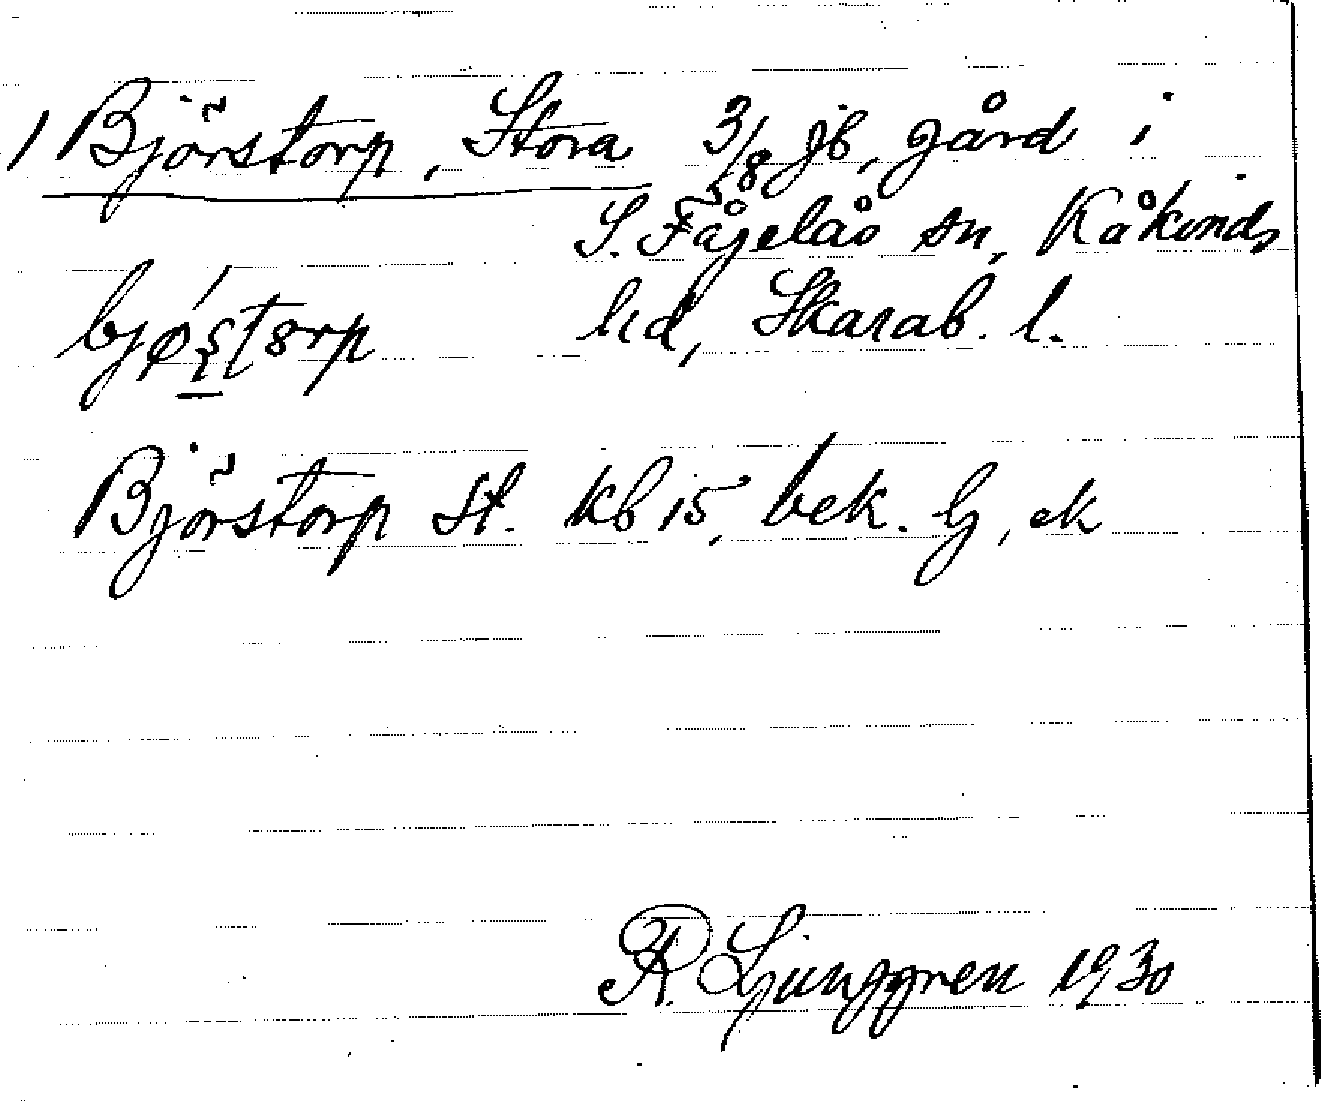 1 Björstorp, Stora 3/8 jb, gård i
S. Fågelås sn, Kåkinds
hd, Skarab. l.
Björstorp St. kb 15, bek. G, ek
R. Ljunggren 1930